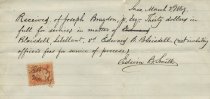 Saco March 2, 1869.
Received, of Joseph Bragdon, Jr. Esq. Thirty dollars in
full for services in matter of
Blaisdell, Libellant, vs Edward B. Blaisdell, (not including
officers fees for service of process)
Edwin B. Smith